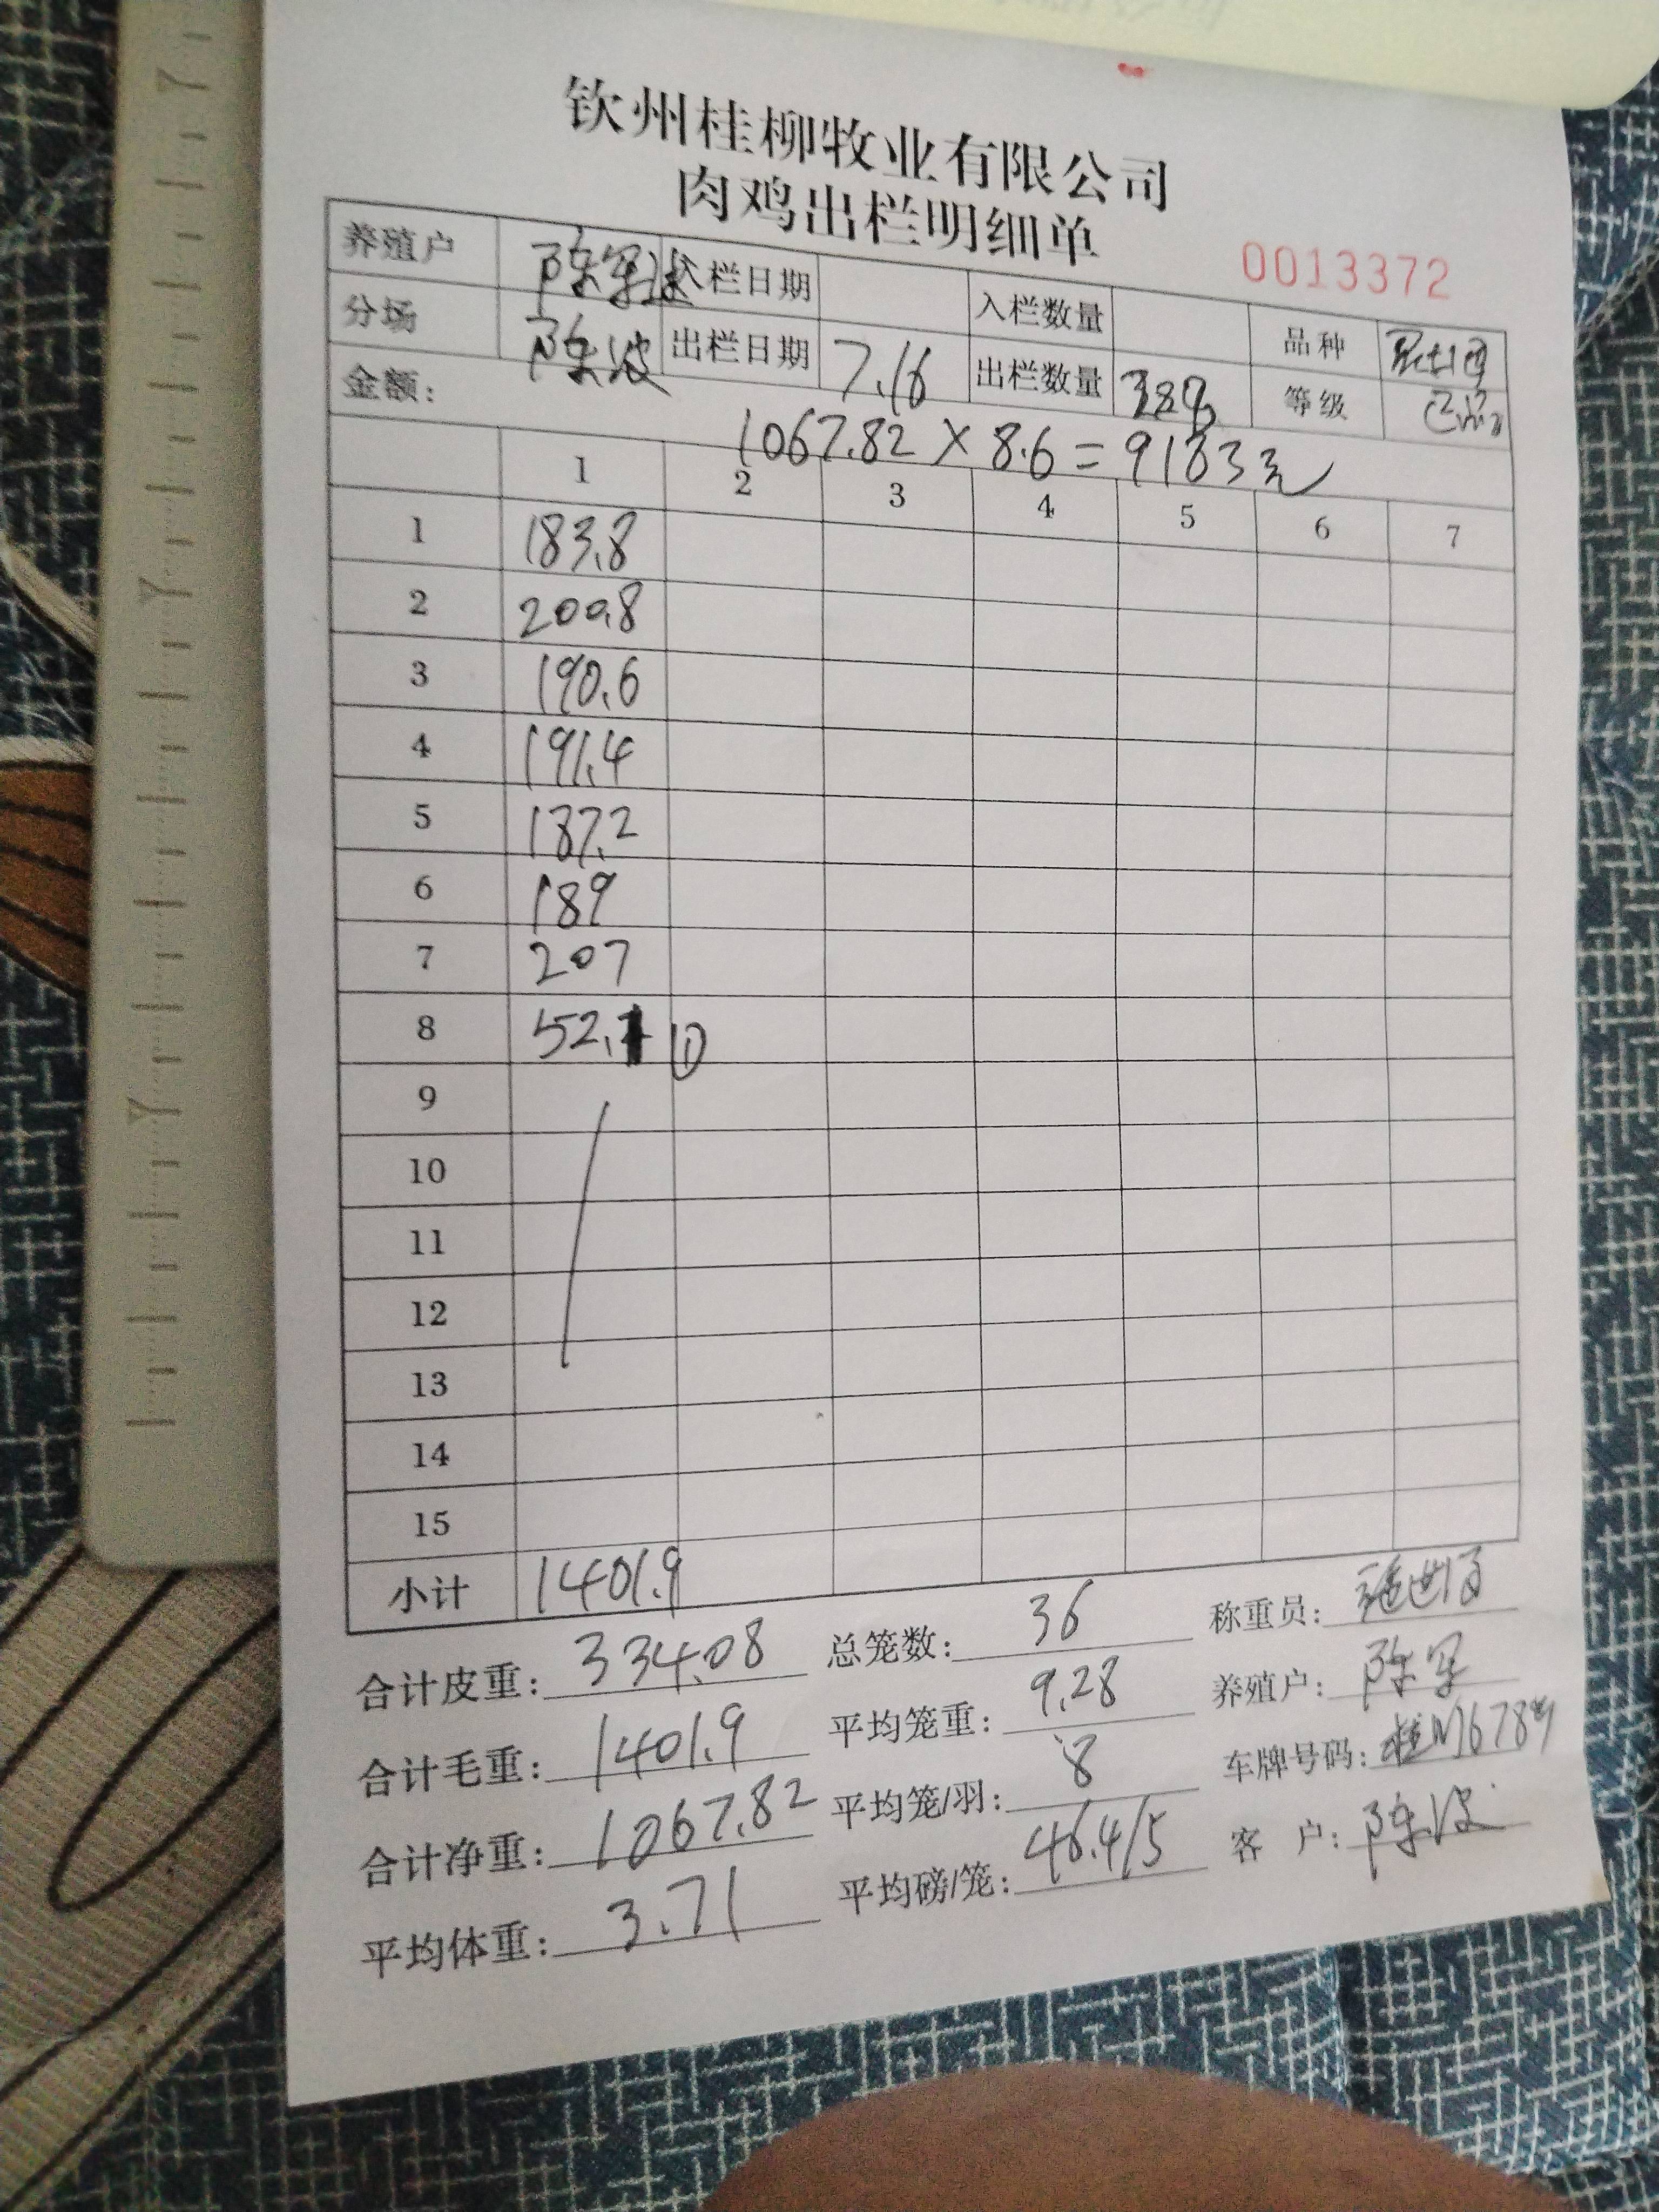 钦州桂柳牧业有限公司
肉鸡出栏明细单
0013372
养殖户 陈军 入栏日期 入栏数量 品种
分场 陈波 出栏日期 7.16 出栏数量 288 等级
金额: 1067.82 × 8.6 = 9183元
1 2 3 4 5 6 7
1 183.8
2 200.8
3 190.6
4 191.4
5 187.2
6 189
7 207
8 52.1 ①
9
10
11
12
13
14
15
小计 1401.9
合计皮重: 334.08 总笼数: 36 称重员:
合计毛重: 1401.9 平均笼重: 9.28 养殖户: 陈军
合计净重: 1067.82 平均笼/羽: 8 车牌号码:
平均体重: 3.71 平均磅/笼: 46.4/5 客 户: 陈波